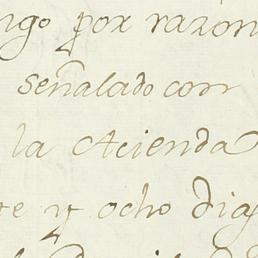 ngo por razón
señalado con
la Acienda
te y ocho dias